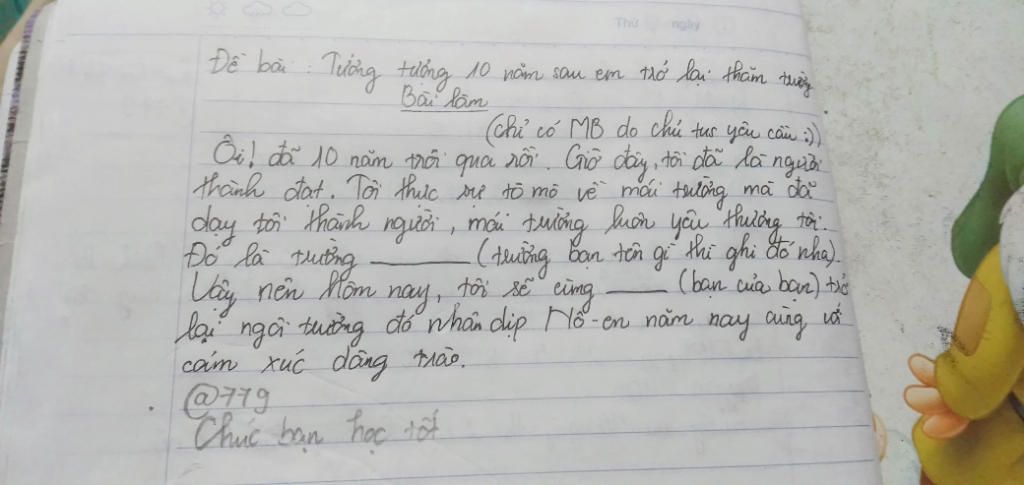 Thứ ngày
Đề bài : Tưởng tượng 10 năm sau em trở lại thăm trường
Bài làm
(chỉ có MB do chủ tus yêu cầu :))
Ôi! đã 10 năm trôi qua rồi. Giờ đây, tôi đã là người
thành đạt. Tôi thực sự tò mò về mái trường mà đã
dạy tôi thành người, mái trường luôn yêu thương tôi.
Đó là trường ______ (trường bạn tên gì thì ghi đó nha).
Vậy nên hôm nay, tôi sẽ cùng ____ (bạn của bạn) trở
lại ngôi trường đó nhân dịp Nô-en năm nay cùng với
cảm xúc dâng trào.
@779
Chúc bạn học tốt